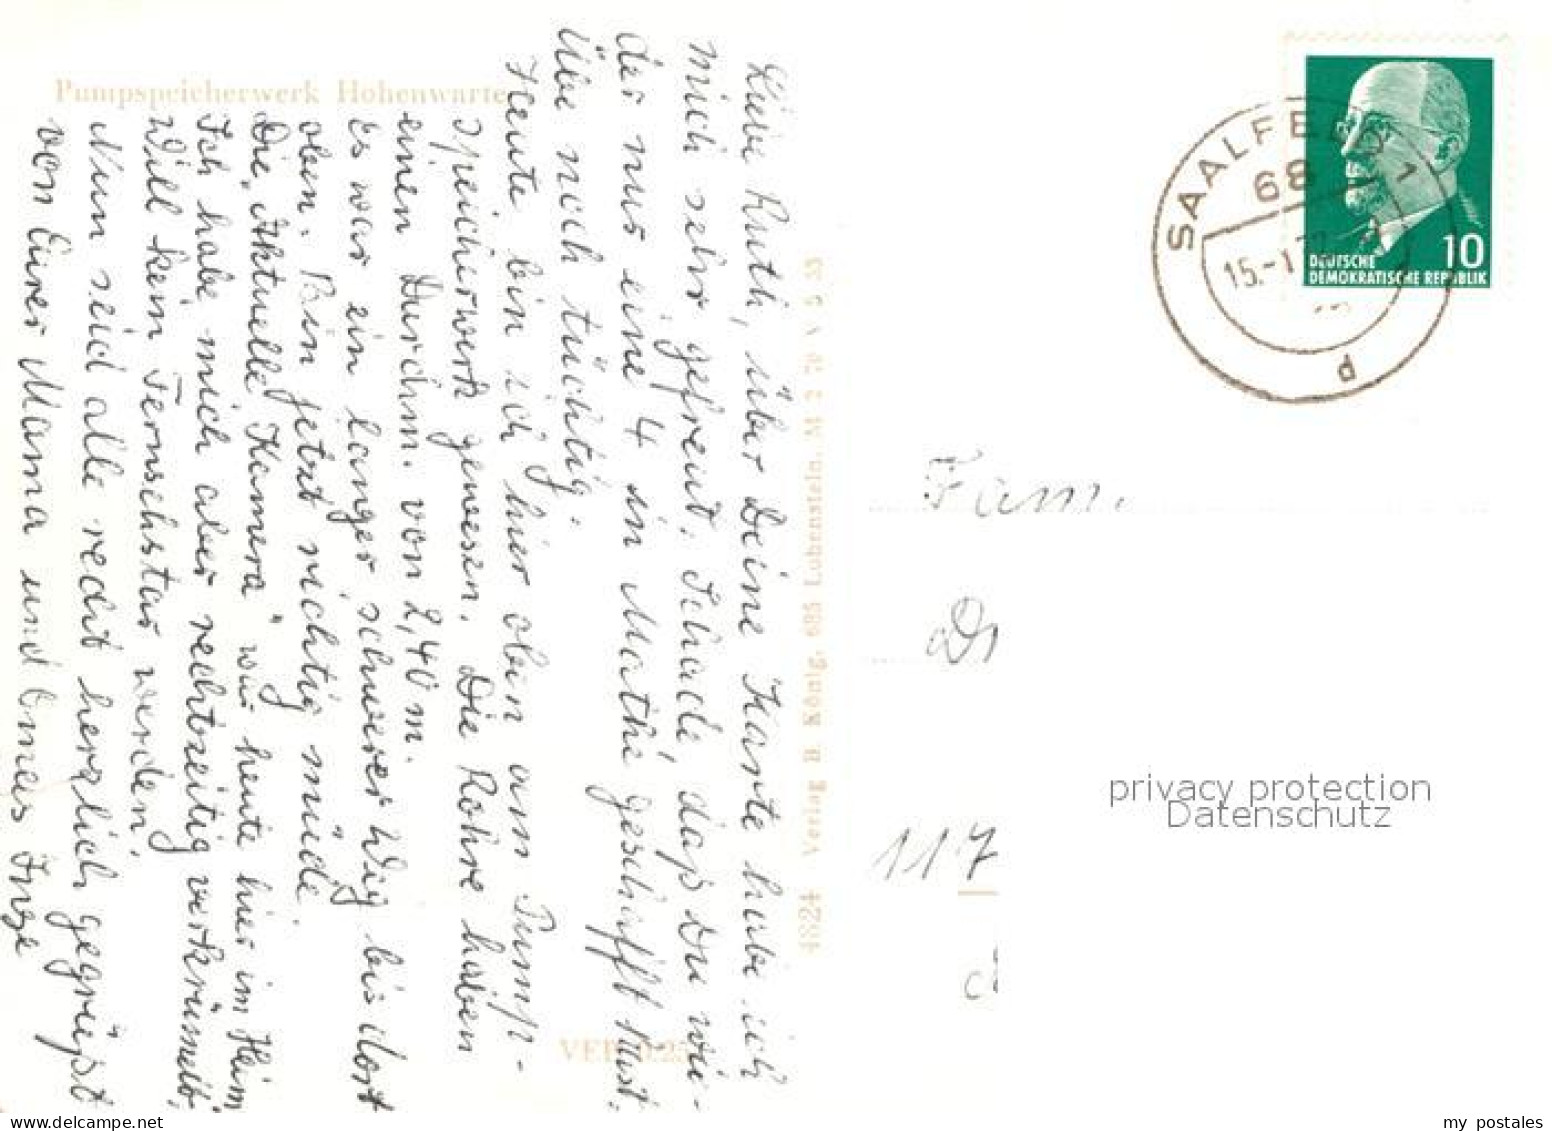 Pumpspeicherwerk Hohenwarte
Liebe Ruth, über Deine Karte habe ich
mich sehr gefreut. Schade, daß Du wie-
der nur eine 4 in Mathe geschafft hast.
Übe noch tüchtig.
Heute bin ich hier oben am Pump-
speicherwerk gewesen. Die Rohre haben
einen Durchm. von 2,40 m.
Es war ein langer schwerer Weg bis dort
oben. Bin jetzt richtig müde.
Die "Aktuelle Kamera" war heute hier im Heim
Ich habe mich aber rechtzeitig verkrümelt,
will kein Fernsehstar werden.
Nun seid alle recht herzlich gegrüßt
von Eurer Mama und Omas Inge
VEB
4824 Verlag H. König, 685 Lobenstein. M 2 70 V
SAALFELD 1
68
15.-1
d
10
DEUTSCHE
DEMOKRATISCHE REPUBLIK
Fam.
117
privacy protection
Datenschutz
my postales